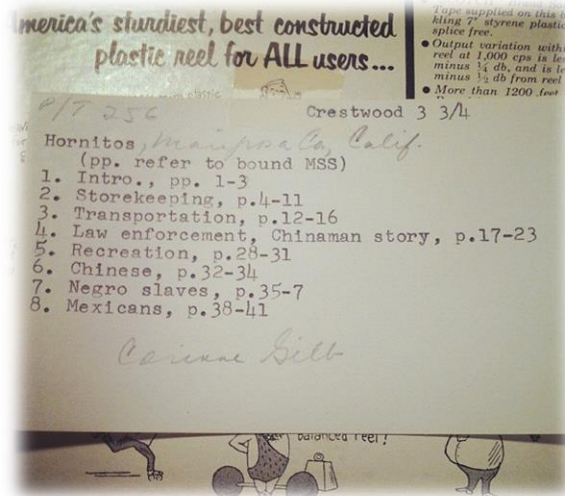 America's sturdiest, best constructed
plastic reel for ALL users...
Tape supplied on this
kling 7" styrene plastic
splice free.
• Output variation with
reel at 1,000 cps is
minus ¼ db, and is
minus ½ db from reel
• More than 1200 feet
P/T 256
Crestwood 3 3/4
Hornitos, Mariposa Co, Calif.
(pp. refer to bound MSS)
1. Intro., pp. 1-3
2. Storekeeping, p.4-11
3. Transportation, p.12-16
4. Law enforcement, Chinaman story, p.17-23
5. Recreation, p.28-31
6. Chinese, p.32-34
7. Negro slaves, p.35-7
8. Mexicans, p.38-41
Corinne Gilb
balanced reel!